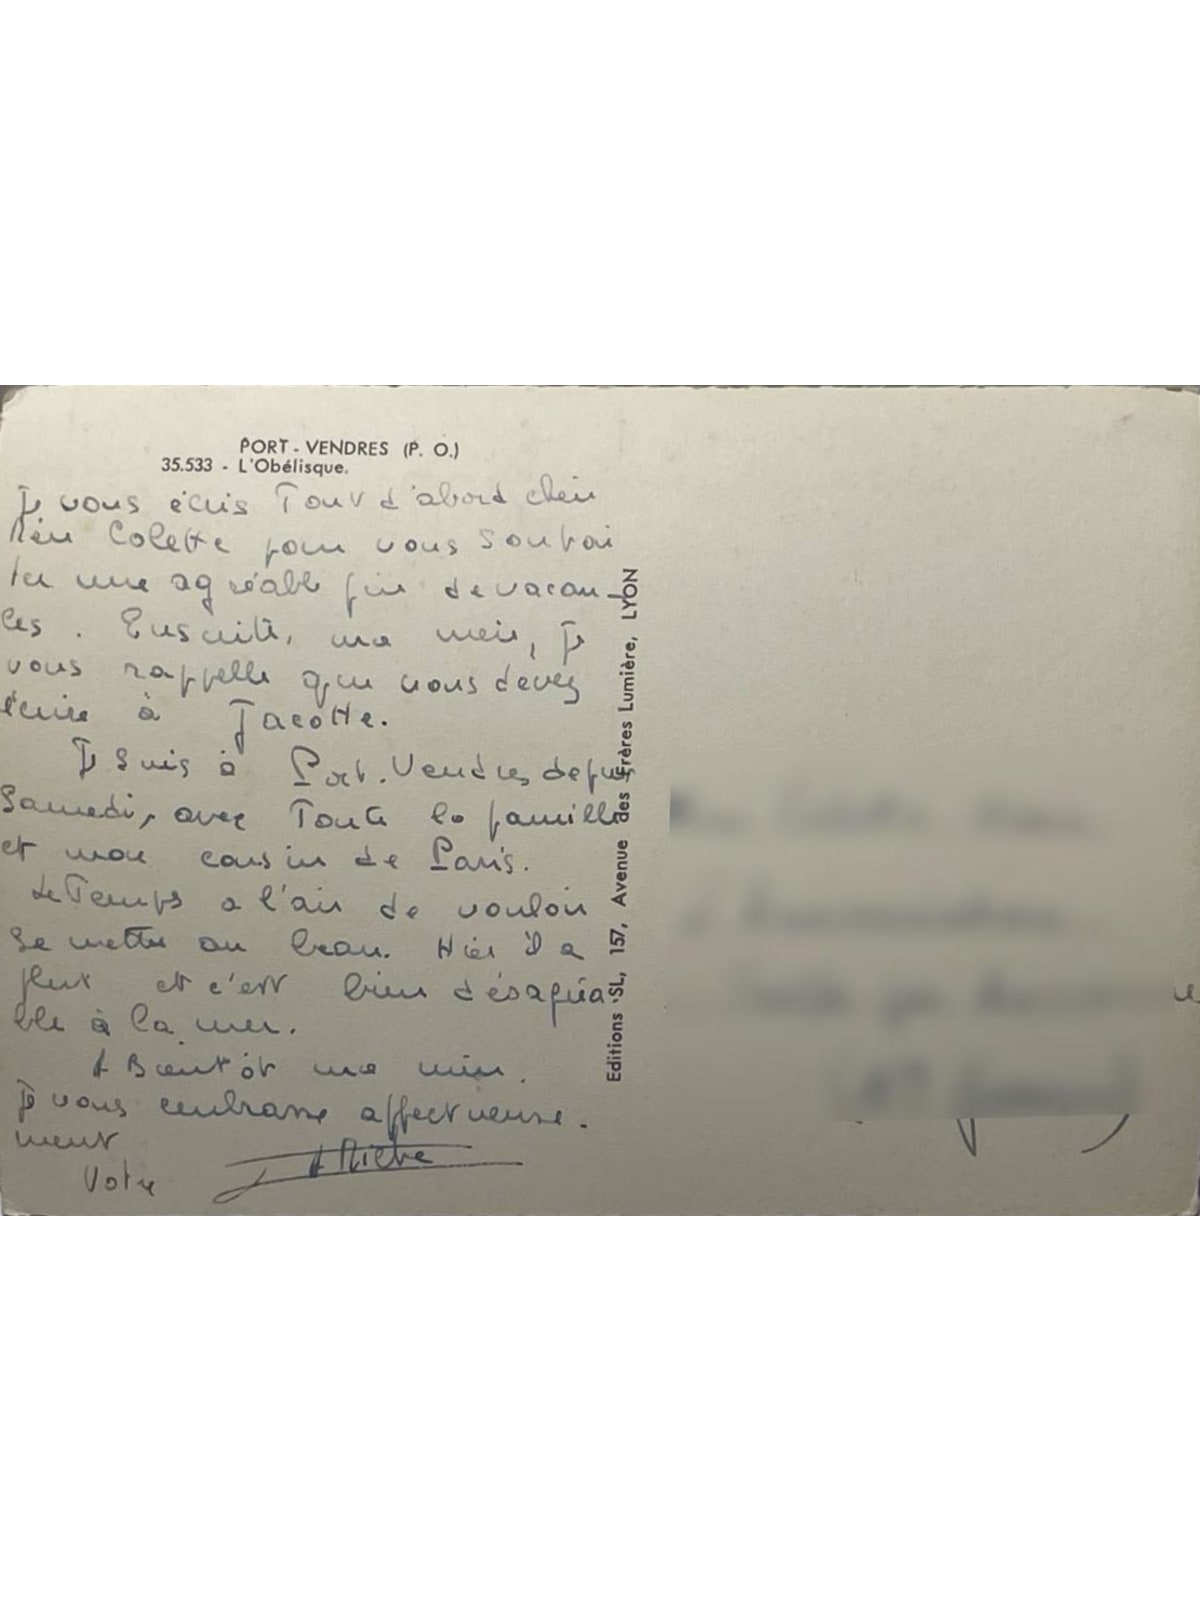 PORT - VENDRES (P. O.)
35.533 - L'Obélisque.
Je vous écris Tout d'abord
Colette pour vous souhai
ter une agréable fin de vacan-
ces. Ensuite, ma, je
vous rappelle que vous devez
écrire à Jacotte.
Je suis à Port-Vendres depuis
Samedi, avec Toute la famille
et mon cousin de Paris.
Le Temps a l'air de vouloir
se mettre au beau. Hier il a
plut et c'est bien désagréa-
ble à la mer.
A Bientôt ma.
Je vous embrasse affectueuse.
ment
Votre
Editions "SL, 157, Avenue des Frères Lumière, LYON